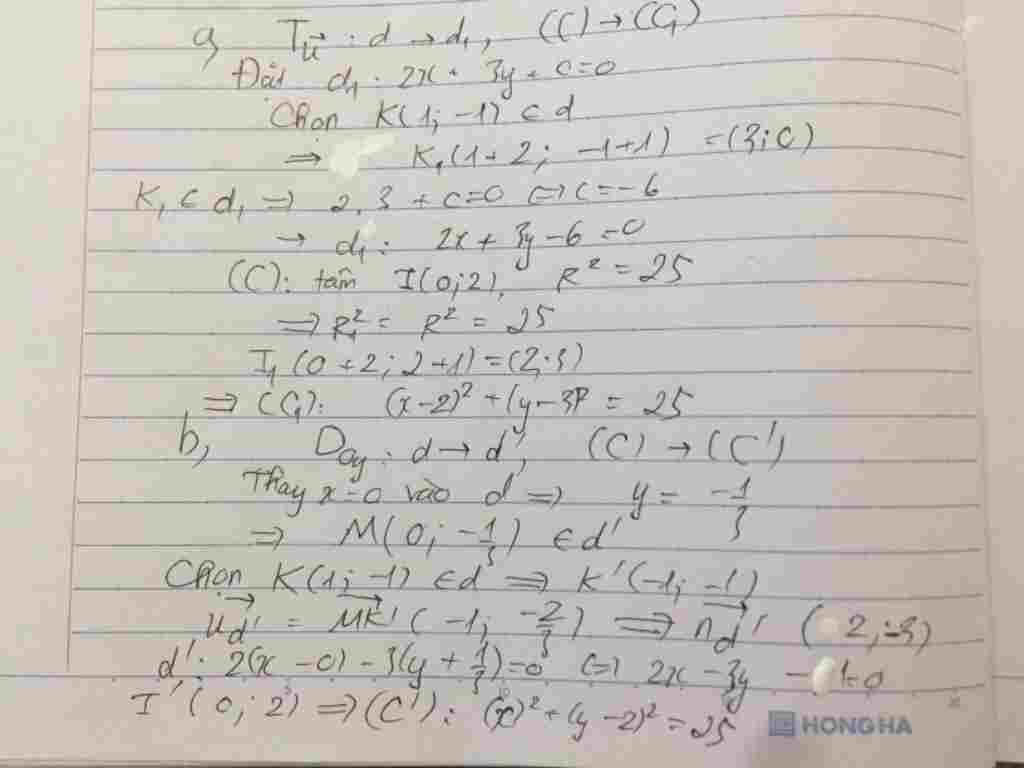 a, T_u⃗ : d → d₁, (C) → (C₁)
Đặt d₁ : 2x + 3y + c = 0
Chọn K(1; -1) ∈ d
⇒ K₁(1+2; -1+1) = (3; 0)
K₁ ∈ d₁ ⇒ 2.3 + c = 0 ⇔ c = -6
→ d₁ : 2x + 3y - 6 = 0
(C): tâm I(0; 2), R² = 25
⇒ R₁² = R² = 25
I₁(0+2; 2+1) = (2; 3)
⇒ (C₁): (x-2)² + (y-3)² = 25
b, Đoy : d → d', (C) → (C')
Thay x=0 vào d ⇒ y = -1/3
⇒ M(0; -1/3) ∈ d'
Chọn K(1; -1) ∈ d ⇒ K'(-1; -1)
u⃗_d' = MK'⃗ (-1; -2/3) ⇒ n⃗_d' (2; -3)
d': 2(x-0) - 3(y + 1/3) = 0 ⇔ 2x - 3y - 1 = 0
I'(0; 2) ⇒ (C'): (x)² + (y-2)² = 25
HONG HA